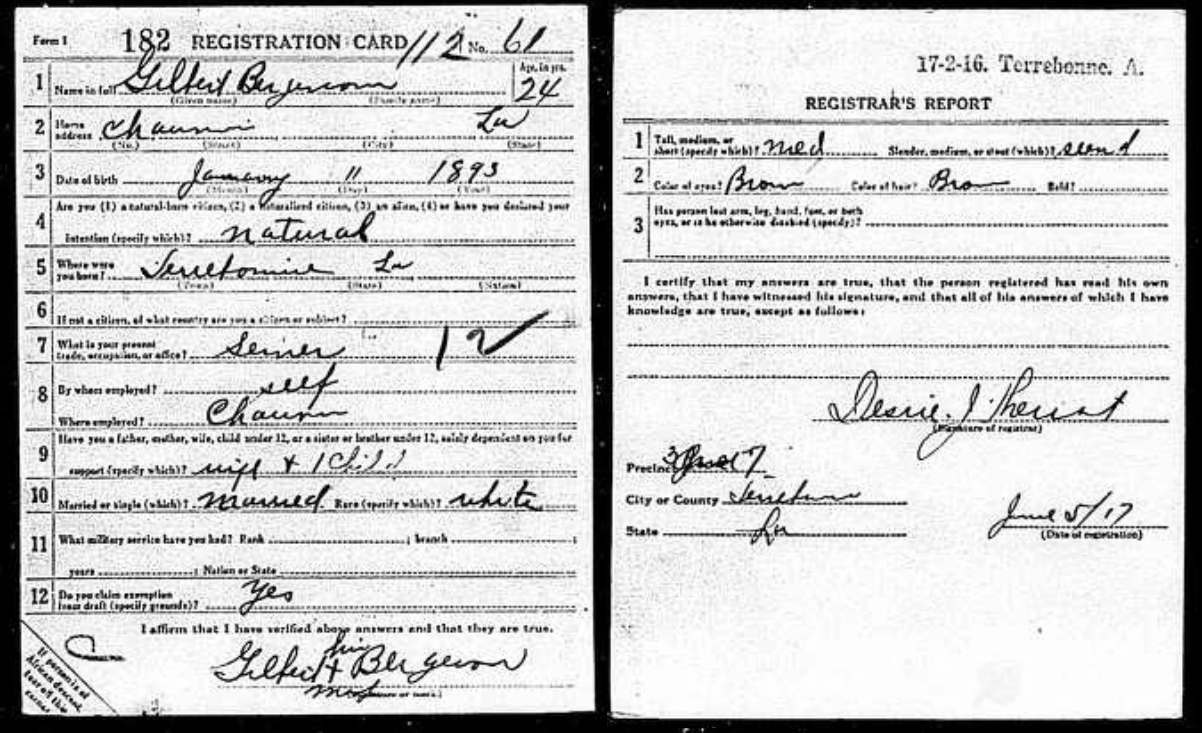 Form 1 182 REGISTRATION CARD 112 No. 61
1 Name in full Gilbert Bergeron Age, in yrs. 24
(Given name) (Family name)
2 Home address Chauvin La
(No.) (Street) (City) (State)
3 Date of birth January 11 1893
(Month) (Day) (Year)
4 Are you (1) a natural-born citizen, (2) a naturalized citizen, (3) an alien, (4) or have you declared your
intention (specify which)? natural
5 Where were you born? Terrebonne La
(Town) (State) (Nation)
6 If not a citizen, of what country are you a citizen or subject?
7 What is your present trade, occupation, or office? Seiner 12
8 By whom employed? self
Where employed? Chauvin
9 Have you a father, mother, wife, child under 12, or a sister or brother under 12, solely dependent on you for
support (specify which)? wife + 1 Child
10 Married or single (which)? Married Race (specify which)? white
11 What military service have you had? Rank ; branch ;
years ; Nation or State
12 Do you claim exemption from draft (specify grounds)? Yes
I affirm that I have verified above answers and that they are true.
his
Gilbert + Bergeron
mark
(Signature or mark)
If person is of
African descent,
tear off this
corner
17-2-16. Terrebonne. A.
REGISTRAR'S REPORT
1 Tall, medium, or short (specify which)? med Slender, medium, or stout (which)?
2 Color of eyes? Brown Color of hair? Brown Bald?
3 Has person lost arm, leg, hand, foot, or both
eyes, or is he otherwise disabled (specify)?
I certify that my answers are true, that the person registered has read his own
answers, that I have witnessed his signature, and that all of his answers of which I have
knowledge are true, except as follows:
J. Theriot
(Signature of registrar)
Precinct 7
City or County Terrebonne
State La
June 5/17
(Date of registration)